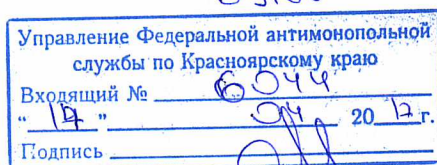 Управление Федеральной антимонопольной
службы по Красноярскому краю
Входящий № 6044
" 17 " 04 20 17 г.
Подпись